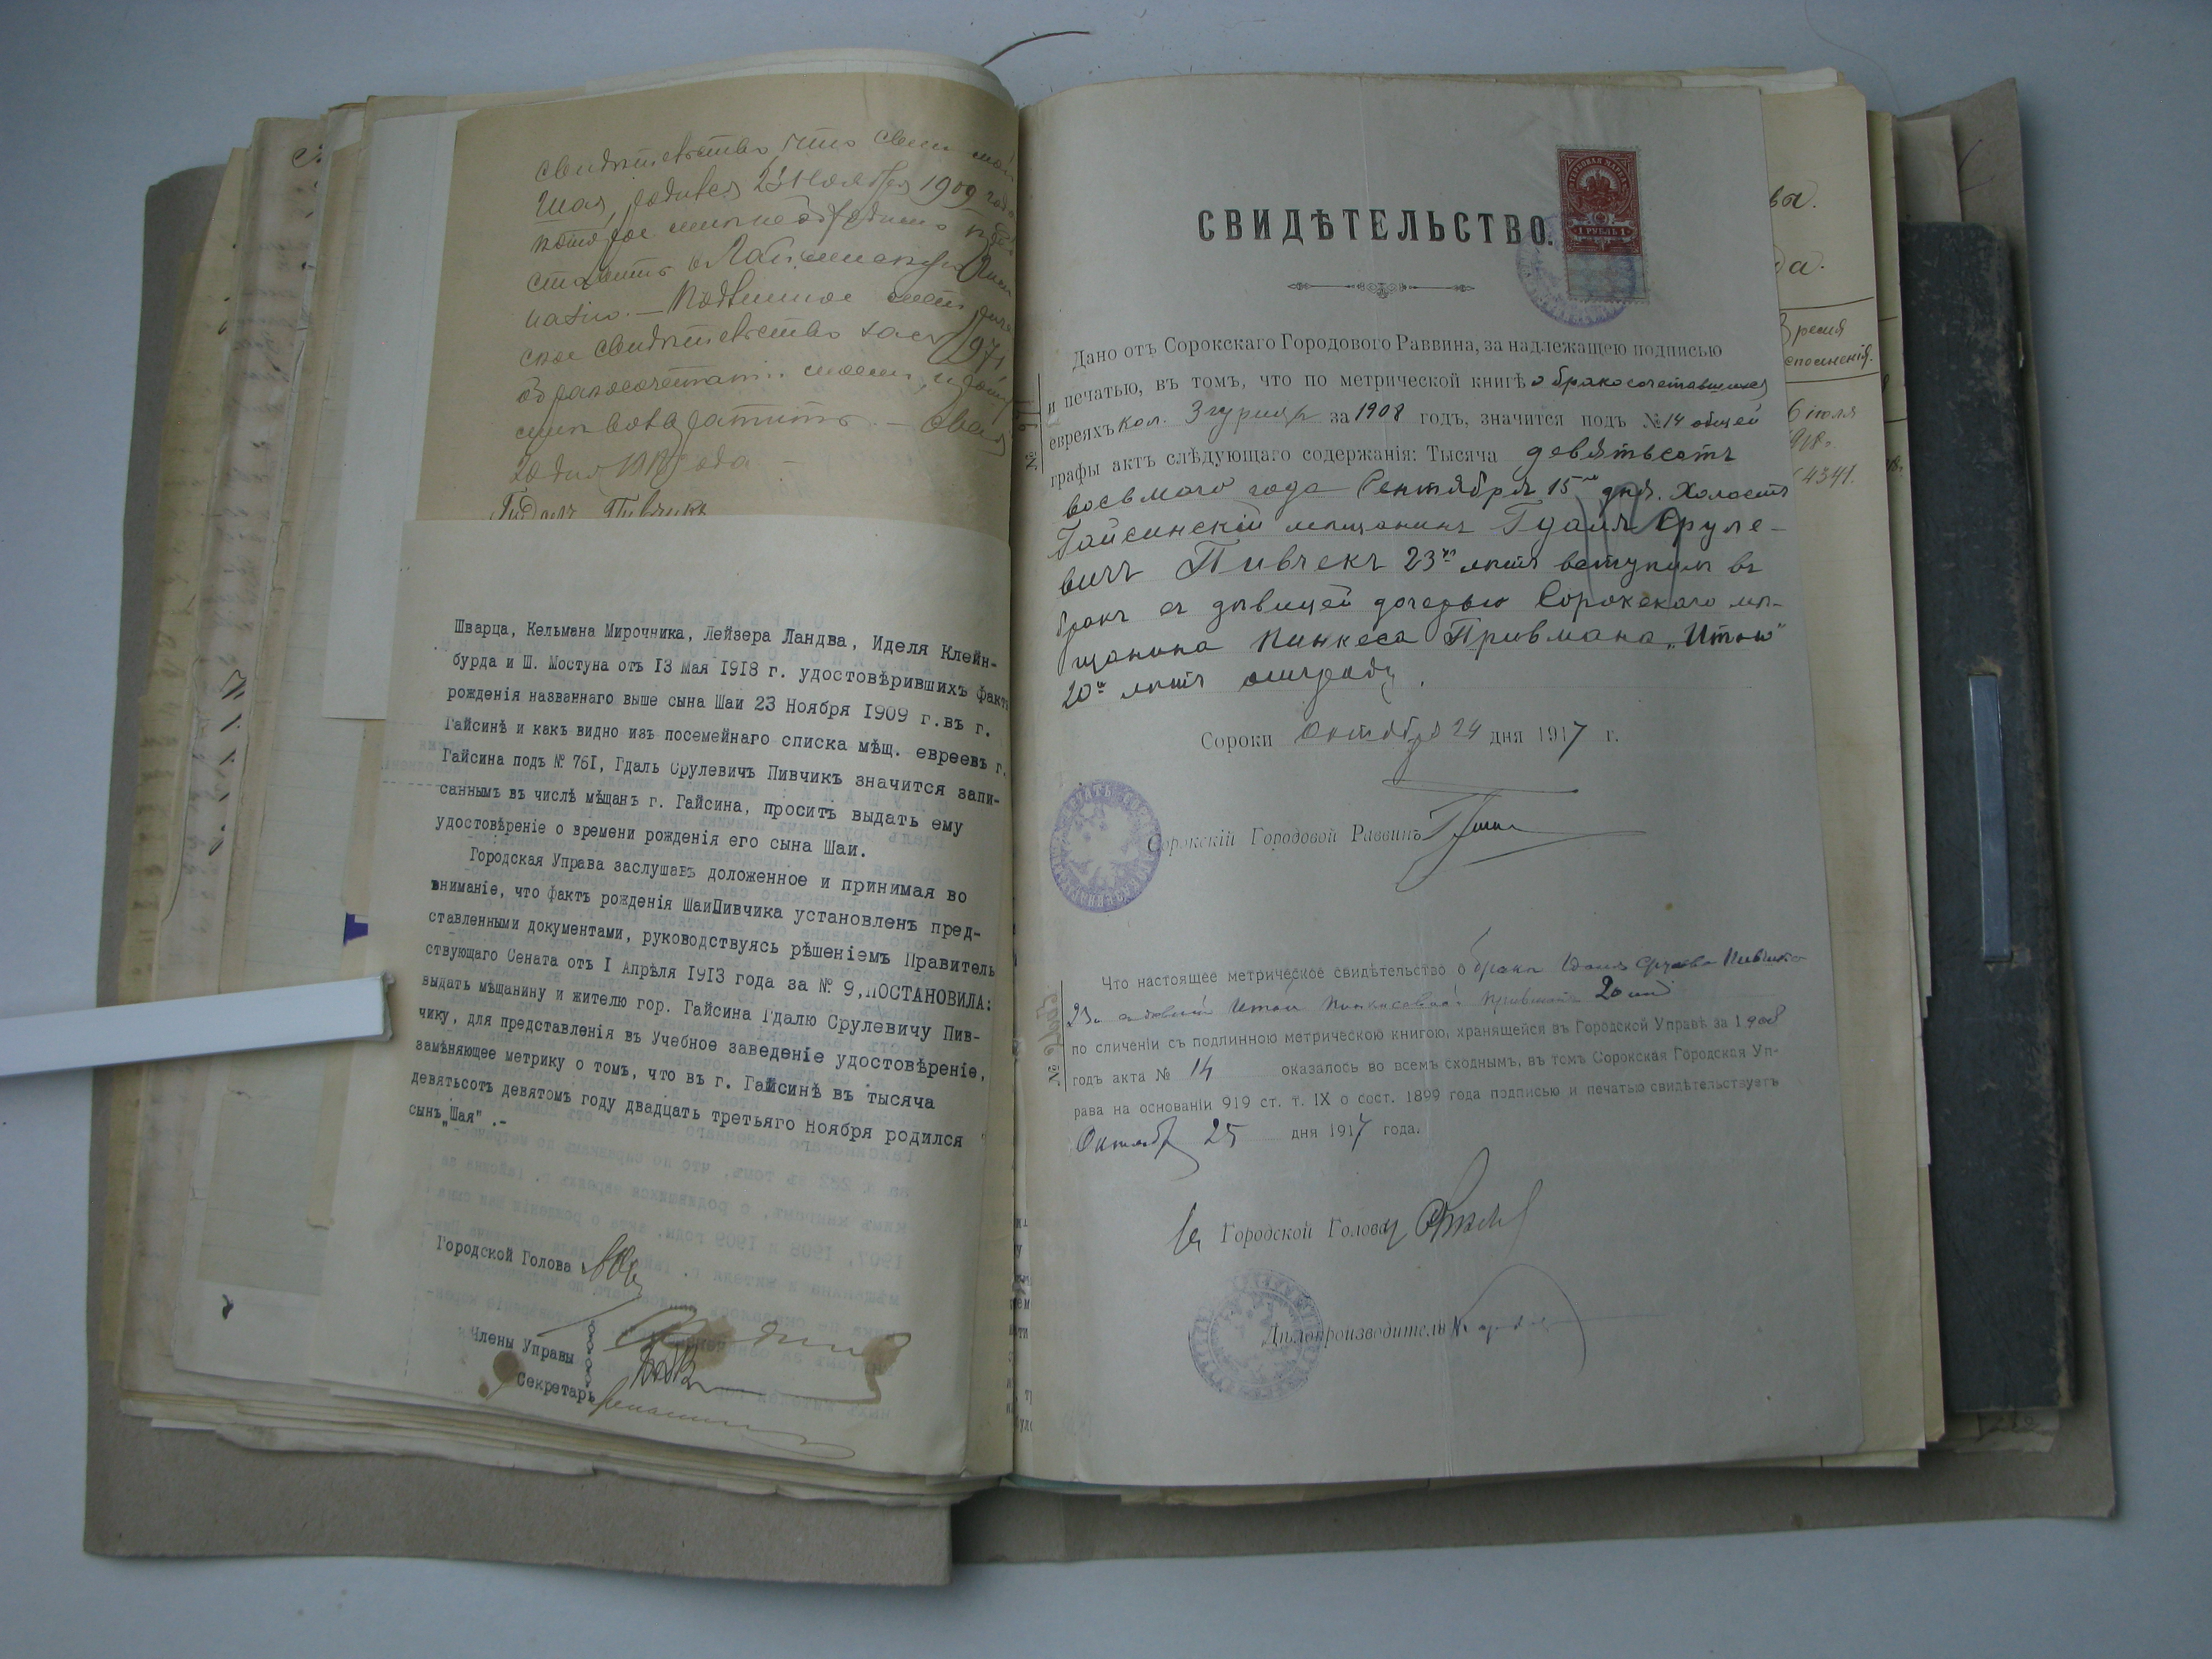 свидѣтельство, что сын мой
Шая, родился 23 Ноября 1909 года
которое мнѣ необходимо пред
ставить в
Подлинное метриче
ское свидѣтельство за № 1971
о бракосочетании моем, прошу
мнѣ возвратить. —
20 дня 1918 года —
Гидаль Пивчикъ
Шварца, Кельмана Мирочника, Лейзера Ландва, Иделя Клейн-
бурда и Ш. Мостуна отъ 13 Мая 1918 г. удостовѣрившихъ фактъ
рожденія названнаго выше сына Шаи 23 Ноября 1909 г. въ г.
Гайсинѣ и какъ видно изъ посемейнаго списка мѣщ. евреевъ г.
Гайсина подъ № 761, Гдаль Срулевичъ Пивчикъ значится запи-
саннымъ въ числѣ мѣщанъ г. Гайсина, проситъ выдать ему
удостовѣреніе о времени рожденія его сына Шаи.
Городская Управа заслушавъ доложенное и принимая во
вниманіе, что фактъ рожденія ШаиПивчика установленъ пред-
ставленными документами, руководствуясь рѣшеніемъ Правитель
ствующаго Сената отъ I Апрѣля 1913 года за № 9, ПОСТАНОВИЛА:
выдать мѣщанину и жителю гор. Гайсина Гдалю Срулевичу Пив-
чику, для представленія въ Учебное заведеніе удостовѣреніе,
замѣняющее метрику о томъ, что въ г. Гайсинѣ въ тысяча
девятьсотъ девятомъ году двадцать третьяго Ноября родился
сынъ „Шая".-
Городской Голова
Члены Управы
Секретарь
СВИДѢТЕЛЬСТВО.
ГЕРБОВАЯ МАРКА
1 РУБЛЬ 1
Дано отъ Сорокскаго Городового Раввина, за надлежащею подписью
и печатью, въ томъ, что по метрической книгѣ о бракосочетавшихся
евреяхъ кол. Згурица за 1908 годъ, значится подъ № 14 общей
графы актъ слѣдующаго содержанія: Тысяча девятьсотъ
восьмого года Сентября 15го дня. Холостъ
Гайсинскій мѣщанинъ Гдаль Сруле-
вичъ Пивчекъ 23хъ лѣтъ вступилъ въ
бракъ съ дѣвицей дочерью Сорокскаго мѣ-
щанина Пинкеса Привмана „Итою"
20и лѣтъ отъ роду.
Сороки Октября 24 дня 1917 г.
Сорокскій Городовой Раввинъ
Что настоящее метрическое свидѣтельство о бракѣ Гдаля Срулева Пивчика
23 съ дѣвицей Итой Пинкасовной Привманъ 20 лѣтъ
по сличеніи съ подлинною метрическою книгою, хранящейся въ Городской Управѣ за 1908
годъ акта № 14 оказалось во всемъ сходнымъ, въ томъ Сорокская Городская Уп-
рава на основаніи 919 ст. т. IX о сост. 1899 года подписью и печатью свидѣтельствуетъ
Октября 25 дня 1917 года.
Городской Голова
Дѣлопроизводитель
ва.
да.
Время
исполненія.
6 іюля
4341.